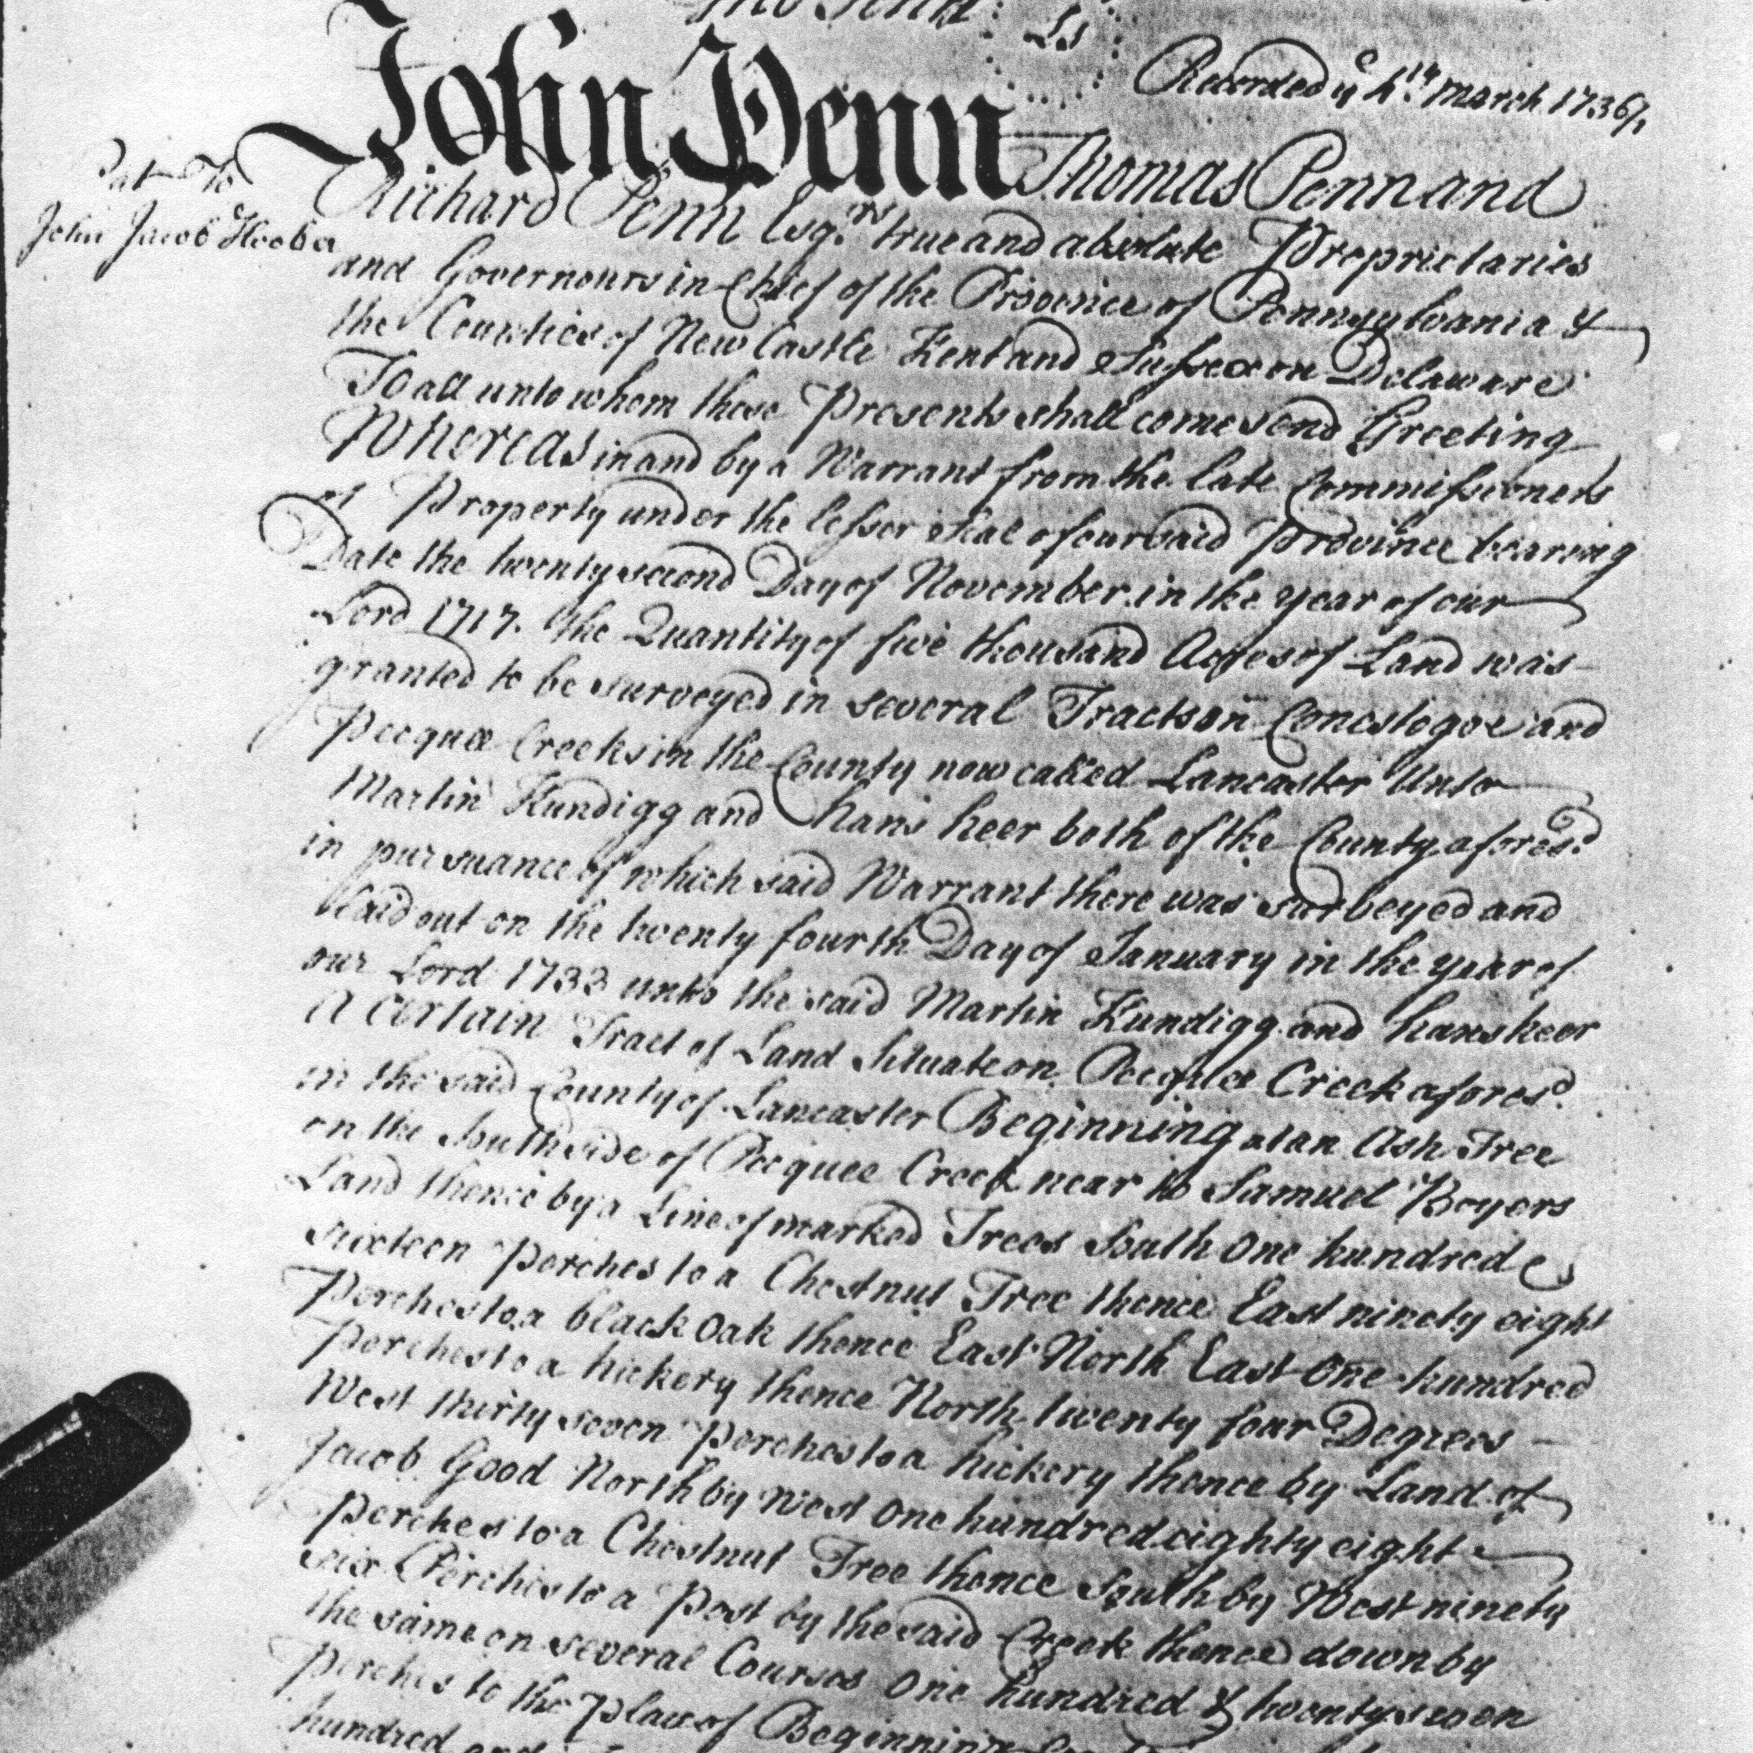 Tho Penn LS
Recorded ye 4th March 1736/7
Pat to
John Jacob Hoober
John Penn Thomas Penn and
Richard Penn Esqrs true and absolute Proprietaries
and Governours in Chief of the Province of Pennsylvania &
the Counties of New Castle Kent and Sussex on Delaware
To all unto whom these Presents shall come send Greeting
Whereas in and by a Warrant from the late Commissioners
of Property under the lesser Seal of our said Province bearing
Date the twenty second Day of November in the year of our
Lord 1717. the Quantity of five thousand Acres of Land was
granted to be surveyed in several Tracts on Conestogoe and
Pecquee Creeks in the County now called Lancaster Unto
Martin Kundigg and hans heer both of the County aforesd.
in pursuance of which said Warrant there was surveyed and
laid out on the twenty fourth Day of January in the year of
our Lord 1733 unto the said Martin Kundigg and hans heer
A certain Tract of Land Situate on Pecquee Creek aforesd
in the said County of Lancaster Beginning at an Ash Tree
on the South side of Pecquee Creek near to Samuel Boyers
Land thence by a Line of marked Trees South One hundred
sixteen Perches to a Chestnut Tree thence East ninety eight
Perches to a black Oak thence East North East One hundred
Perches to a hickery thence North twenty four Degrees
West thirty seven Perches to a hickery thence by Land of
Jacob Good North by West One hundred eighty eight
Perches to a Chestnut Tree thence South by West ninety
six Perches to a Post by the said Creek thence down by
the same on several Courses One hundred & twenty seven
Perches to the Place of Beginning
hundred and